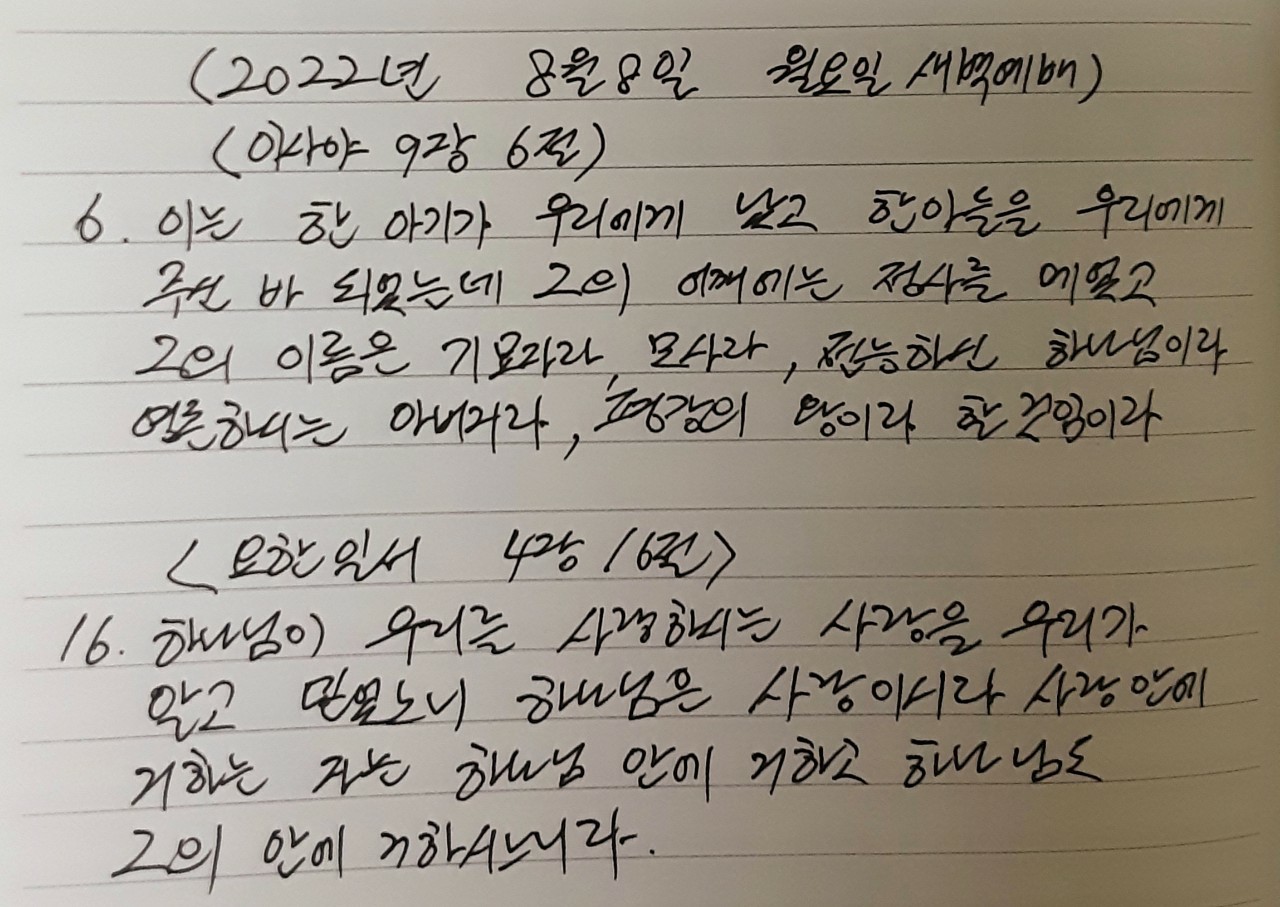 (2022년 8월 8일 월요일 새벽예배)
(이사야 9장 6절)
6. 이는 한 아기가 우리에게 났고 한아들을 우리에게
주신 바 되었는데 그의 어깨에는 정사를 메었고
그의 이름은 기묘자라, 모사라, 전능하신 하나님이라
영존하시는 아버지라, 평강의 왕이라 할 것임이라
<요한일서 4장 16절>
16. 하나님이 우리를 사랑하시는 사랑을 우리가
알고 믿었노니 하나님은 사랑이시라 사랑 안에
거하는 자는 하나님 안에 거하고 하나님도
그의 안에 거하시느니라.